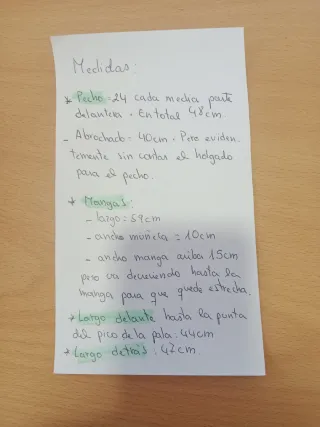 Medidas:
* Pecho = 24 cada media parte
delantera. En total 48cm.
- Abrochado = 40cm. Pero eviden
temente sin contar el holgado
para el pecho.
* Mangas:
- largo = 59cm
- ancho muñeca = 10cm
- ancho manga arriba 15cm
pero va decreciendo hasta la
manga para que quede estrecha.
* Largo delante hasta la punta
del pico de la pala: 44cm
* Largo detrás: 42cm.